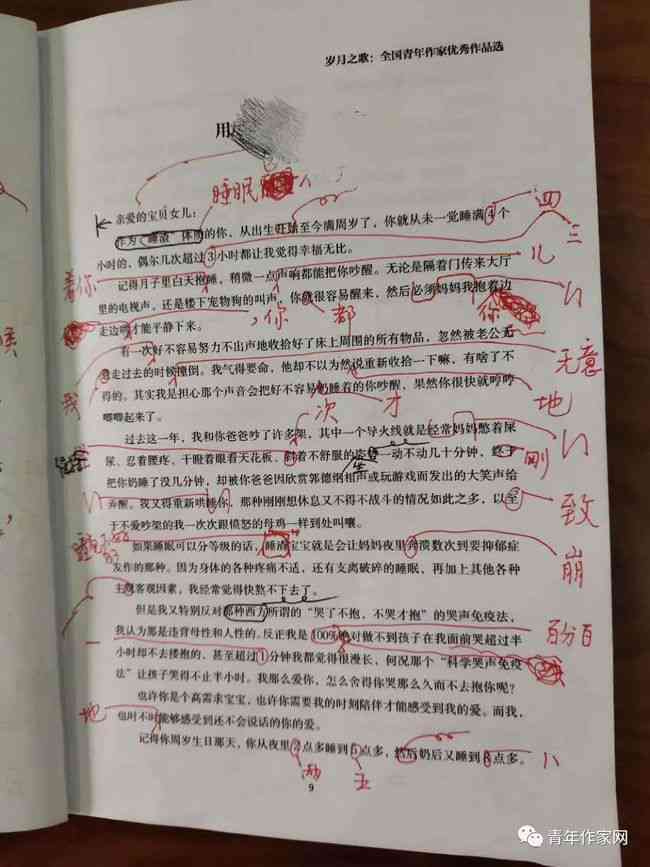 岁月之歌：全国青年作家优秀作品选
用
睡眠
亲爱的宝贝女儿：
作为“睡渣”体质的你，从出生开始至今满周岁了，你就从未一觉睡满4个
四
小时的，偶尔几次超过3小时都让我觉得幸福无比。
三
记得月子里白天抱睡，稍微一点声响都能把你吵醒。无论是隔着门传来大厅
着你
儿
里的电视声，还是楼下宠物狗的叫声，你就很容易醒来，然后必须妈妈我抱着边
走边哄才能平静下来。
，你
都
你
有一次好不容易努力不出声地收拾好了床上周围的所有物品，忽然被老公无
意走过去的时候撞倒。我气得要命，他却不以为然说重新收拾一下嘛，有啥了不
无意
得的。其实我是担心那个声音会把好不容易奶睡着的你吵醒，果然你很快就哼哼
我
地
唧唧起来了。
次
才
过去这一年，我和你爸爸吵了许多架，其中一个导火线就是经常妈妈憋着尿
尿、忍着腰疼、干瞪着眼看天花板、斜着不舒服的姿势一动不动几十分钟，终于
刚
把你奶睡了没几分钟，却被你爸爸因欣赏郭德纲相声或玩游戏而发出的大笑声给
弄醒。我又得重新哄睡你，那种刚刚想休息又不得不战斗的情况如此之多，以至
致
于不爱吵架的我一次次跟愤怒的母鸡一样到处叫嚷。
如果睡眠可以分等级的话，睡渣宝宝就是会让妈妈夜里奔溃数次到要抑郁症
崩
发作的那种。因为身体的各种疼痛不适，还有支离破碎的睡眠，再加上其他各种
主观客观因素，我经常觉得快熬不下去了。
但是我又特别反对那种西方所谓的“哭了不抱，不哭才抱”的哭声免疫法，
我认为那是违背母性和人性的。反正我是100%绝对做不到孩子在我面前哭超过半
百分百
小时却不去搂抱的，甚至超过1分钟我都觉得很漫长，何况那个“科学哭声免疫
一
法”让孩子哭得不止半小时。我那么爱你，怎么舍得你哭那么久而不去抱你呢？
也许你是个高需求宝宝，也许你需要我的时刻陪伴才能感受到我的爱。而我，
地
也时不时能够感受到还不会说话的你的爱。
记得你周岁生日那天，你从夜里2点多睡到5点多，然后奶后又睡到8点多。
八
两
五
9
青年作家网